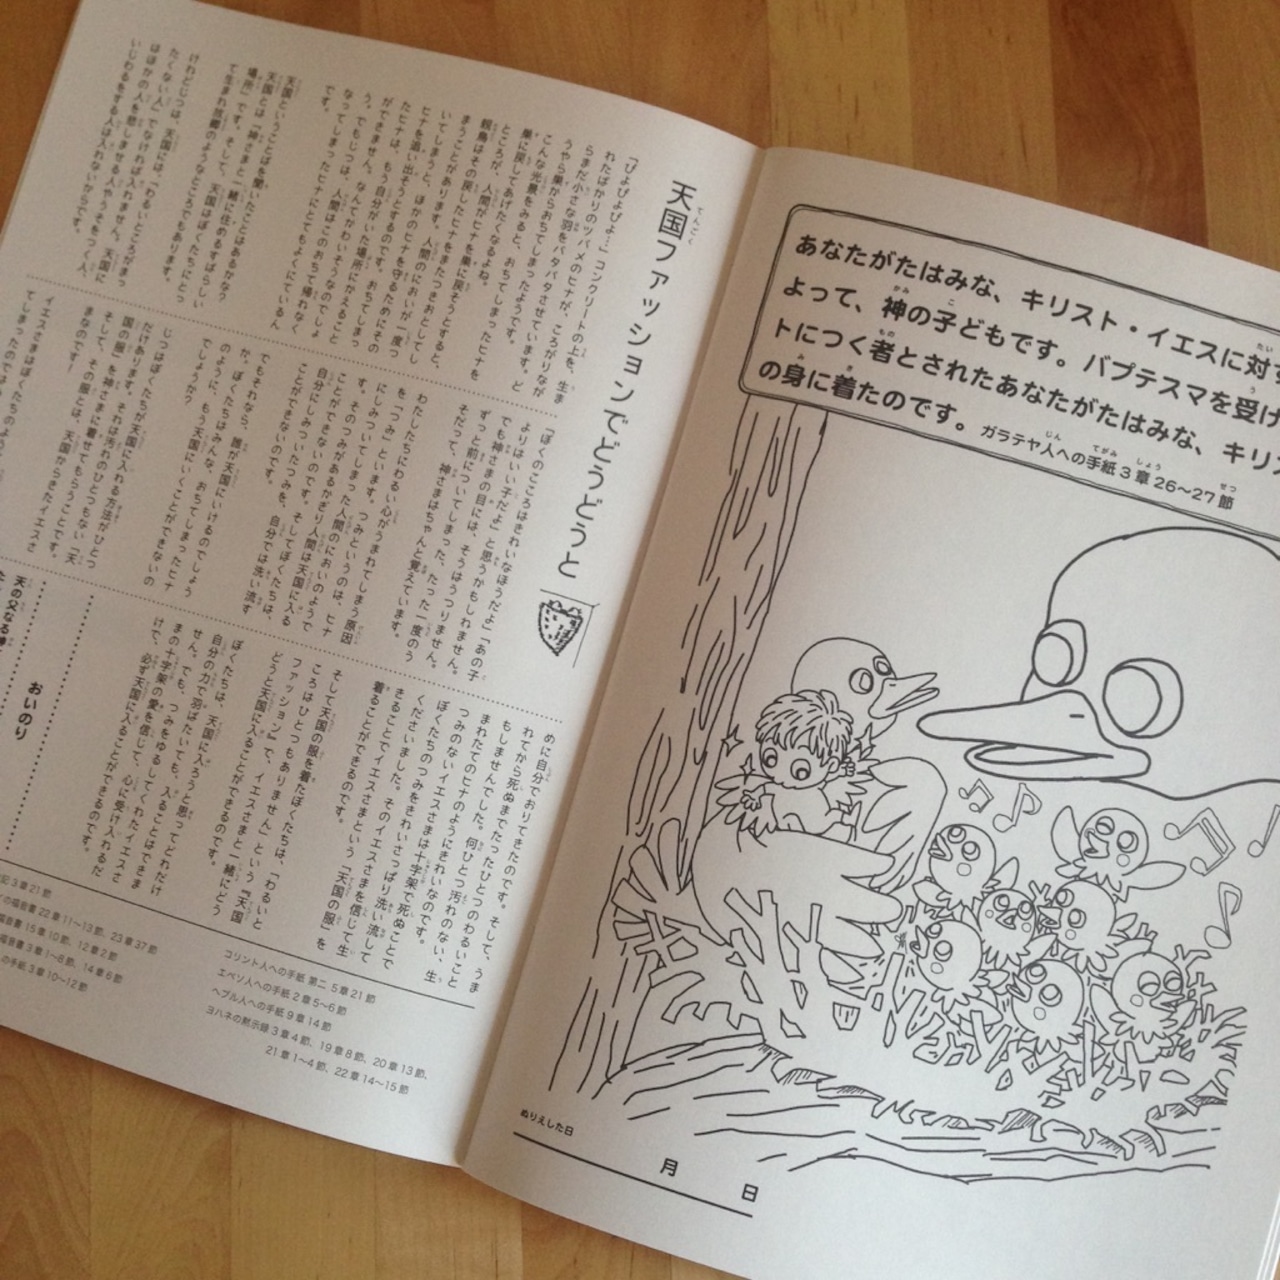 天国ファッションでどうどうと
「ぴよぴよぴよ…」コンクリートの上を、生ま
れたばかりのツバメのヒナが、ころがりなが
らまだ小さな羽をパタパタさせています。ど
うやら巣からおちてしまったようです。
こんな光景をみると、おちてしまったヒナを
巣に戻してあげたくなるよね。
ところが、人間がヒナを巣に戻そうとすると、
親鳥はその戻したヒナをまたつきおとしてし
まうことがあります。人間のにおいが一度つ
いてしまうと、ほかのヒナを守るためにその
ヒナを追い出そうとするのです。おちてしまっ
たヒナは、もう自分がいた場所にかえること
ができません。なんてかわいそうなのでしょ
う。でもじつは、人間はこのおちて帰れなく
なってしまったヒナにとてもよくにているん
です。
天国ということばを聞いたことはあるかな?
天国とは「神さまと一緒に住めるすばらしい
場所」です。そして、天国はぼくたちにとっ
て生まれ故郷のようなところでもあります。
けれどじつは、天国には、「わるいところがまっ
たくない人」でなければ入れません。天国に
はほかの人を悲しませる人やうそをつく人、
いじわるをする人は入れないからです。
「ぼくのこころはきれいなほうだよ」「あの子
よりはいい子だよ」と思うかもしれません。
でも神さまの目には、そうはうつりません。
ずっと前についてしまった、たった一度のう
そだって、神さまはちゃんと覚えています。
わたしたちにわるい心がうまれてしまう原因
を「つみ」といいます。つみというのは、ヒナ
にしみついてしまった人間のにおいのようで
す。そのつみがあるかぎり人間は天国に入る
ことができないのです。そしてぼくたちは、
自分にしみついたつみを、自分では洗い流す
ことができないのです。
でもそれなら、誰が天国にいけるのでしょう
か。ぼくたちはみんな、おちてしまったヒナ
のように、もう天国にいくことができないの
でしょうか?
じつはぼくたちが天国に入れる方法がひとつ
だけあります。それは汚れのひとつもない「天
国の服」を神さまに着せてもらうことです。
そして、その服とは、天国からきたイエスさ
まなのです!
イエスさまはぼくたちの
めに自分でおりてきたのです。そして、うま
れてから死ぬまでたったひとつのわるいこと
もしませんでした。何ひとつ汚れのない、生
まれたてのヒナのようにきれいなのです。
つみのないイエスさまは十字架で死ぬことで
ぼくたちのつみをきれいさっぱり洗い流して
くださいました。そのイエスさまを信じて生
きることでイエスさまという「天国の服」を
着ることができるのです。
そして天国の服を着たぼくたちは、「わるいと
ころはひとつもありません」という『天国
ファッション』で、イエスさまと一緒にどう
どうと天国に入ることができるのです。
ぼくたちは、天国に入ろうと思ってどれだけ
自分の力で羽ばたいても、入ることはできま
せん。でも、つみをゆるしてくれたイエスさ
まの十字架の愛を信じて、心に受け入れるだ
けで、必ず天国に入ることができるのです。
おいのり
天の父なる神
記3章21節
の福音書 22章11〜13節、23章37節
福音書 15章10節、12章2節
福音書 3章1〜8節、14章6節
の手紙 3章10〜12節
コリント人への手紙 第二 5章21節
エペソ人への手紙 2章5〜6節
ヘブル人への手紙 9章14節
ヨハネの黙示録 3章4節、19章8節、20章13節、
21章1〜4節、22章14〜15節
あなたがたはみな、キリスト・イエスに対す
よって、神の子どもです。バプテスマを受け
トにつく者とされたあなたがたはみな、キリス
の身に着たのです。 ガラテヤ人への手紙3章26〜27節
ぬりえした日
月 日